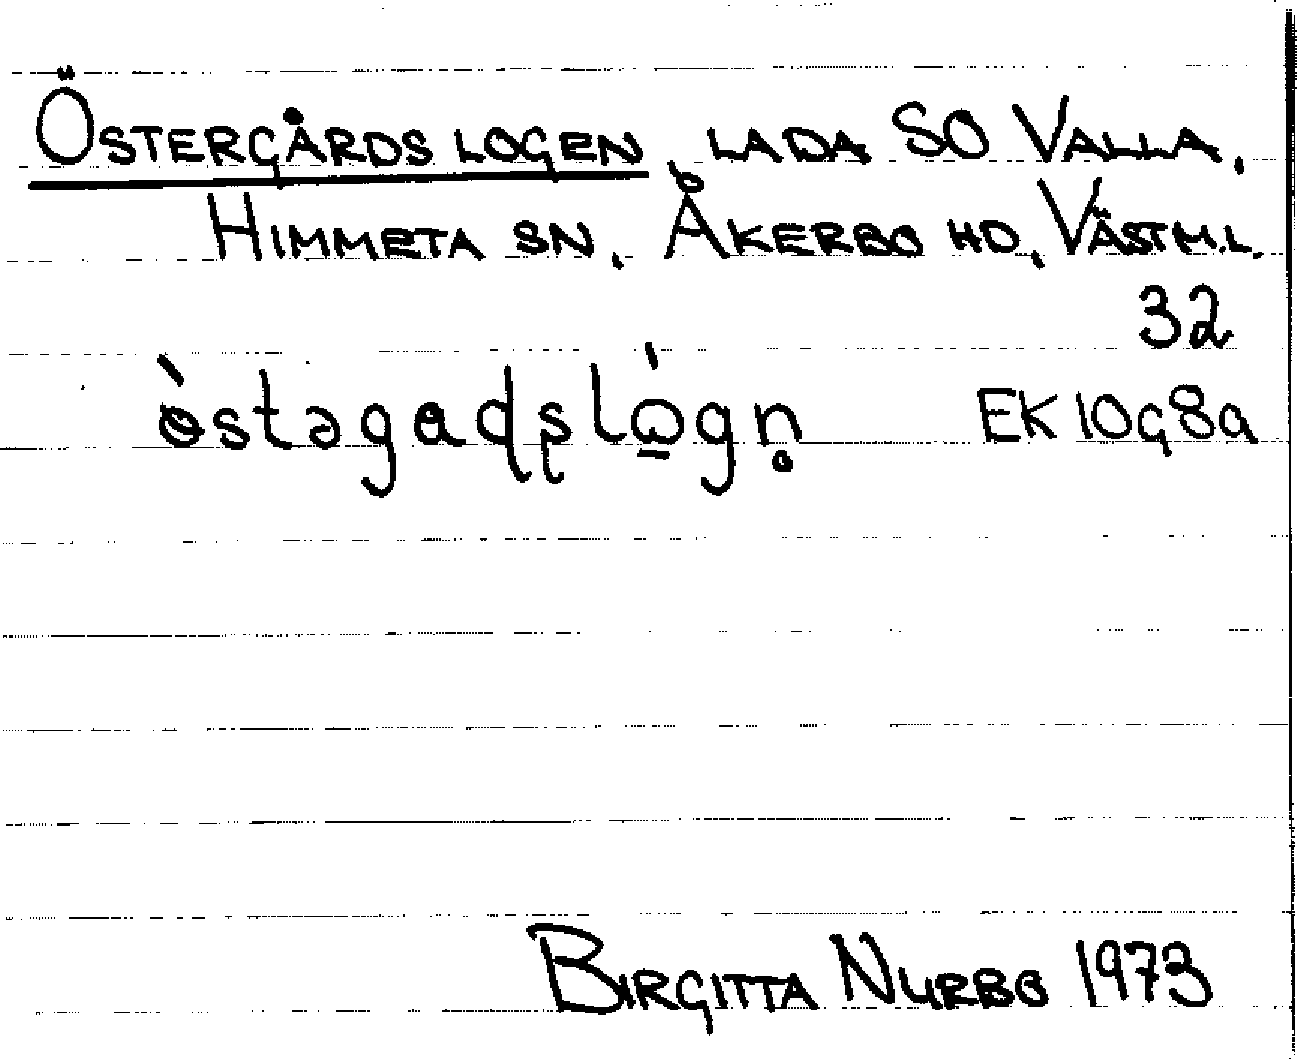 ÖSTERGÅRDSLOGEN, LADA SO VALLA,
HIMMETA SN, ÅKERBO HD, VÄSTM.L.
32
EK 10g8a
BIRGITTA NURBO 1973